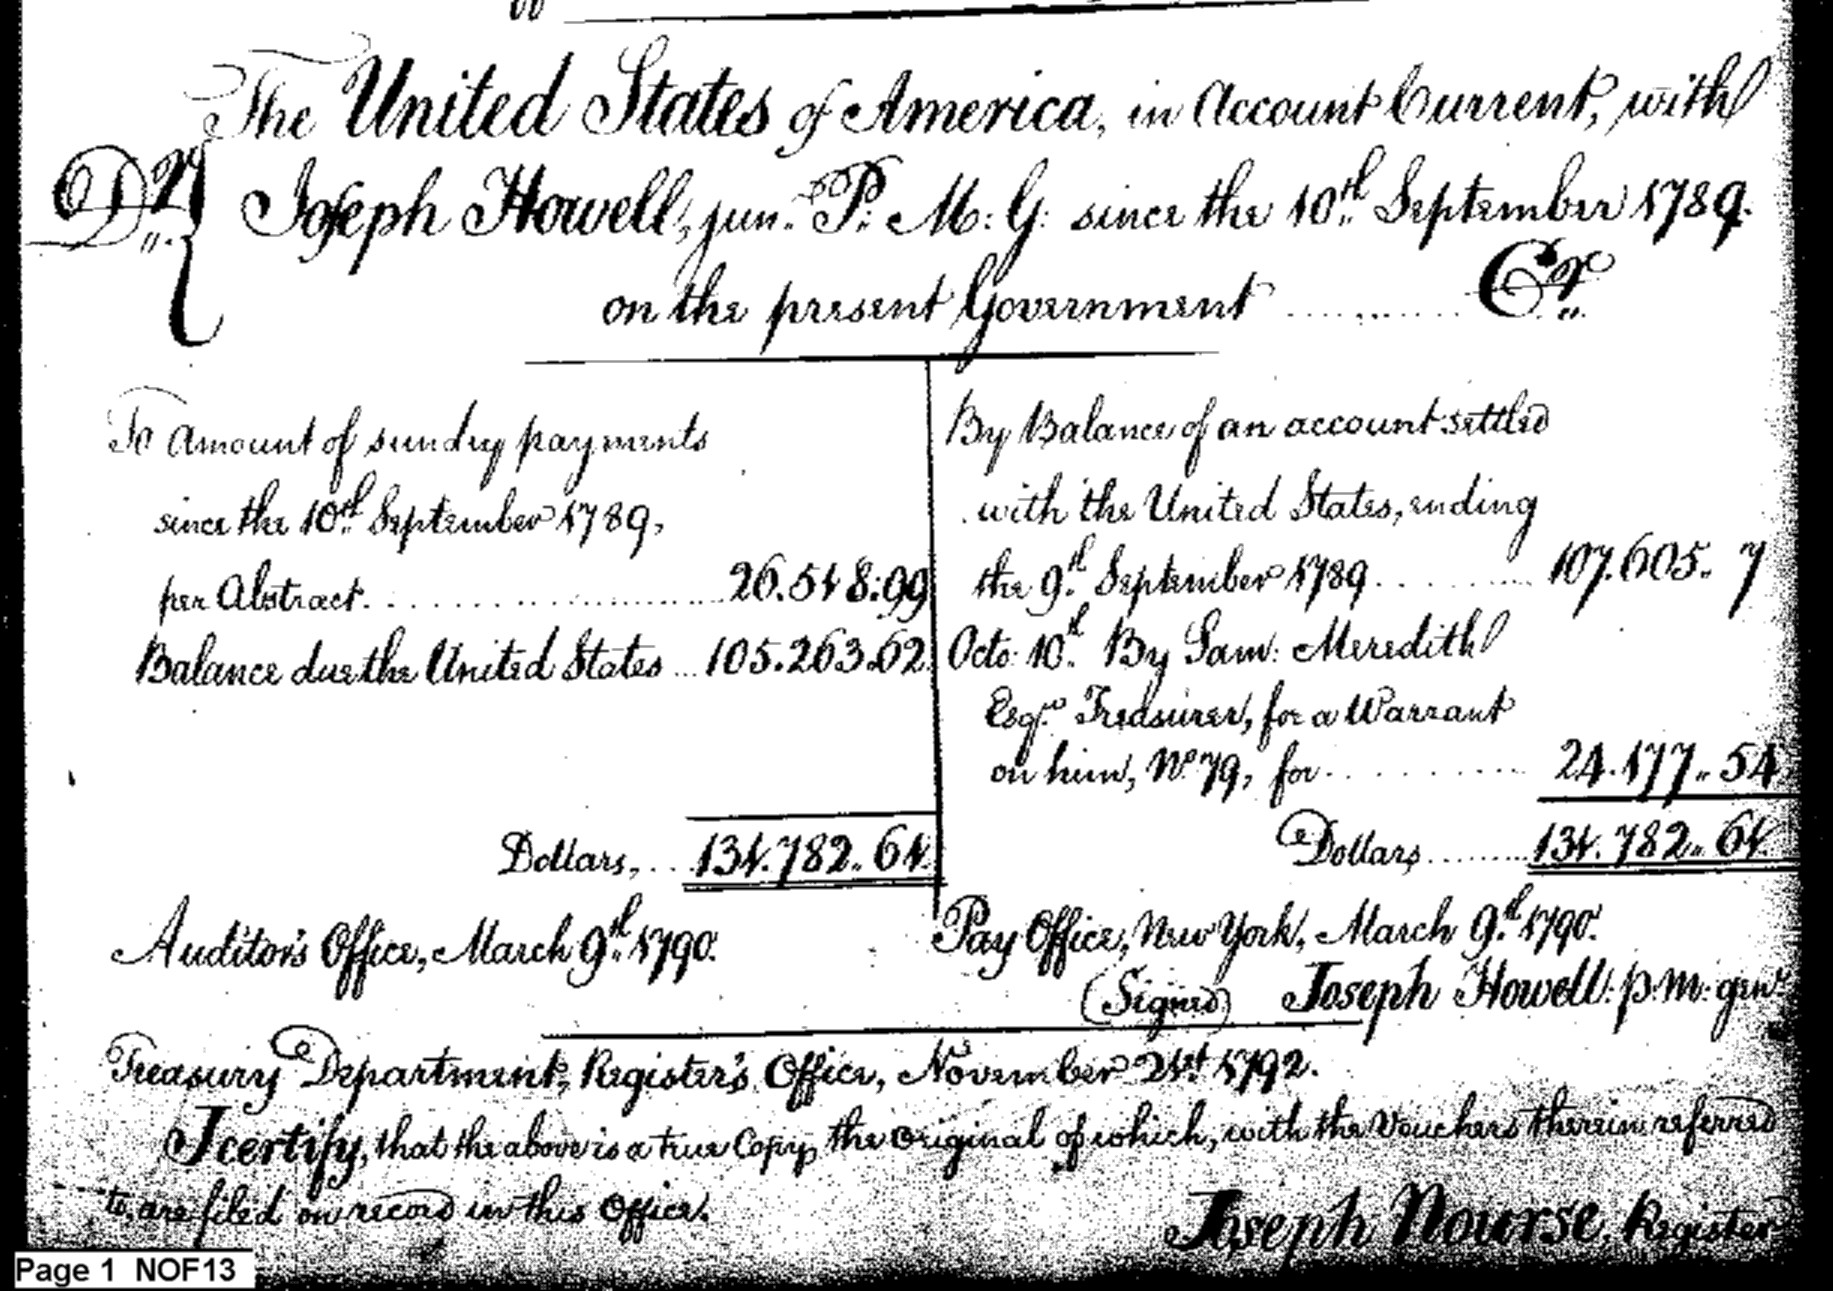 The United States of America, in Account Current, with
Dr. Joseph Howell, jun. P: M: G: since the 10th September 1789.
on the present Government ......... Cr.
To Amount of sundry payments
since the 10th September 1789,
per Abstract ........ 26.518:99
Balance due the United States ... 105.263.62.
Dollars, ... 131.782.. 61.
Auditor's Office, March 9th 1790.
By Balance of an account settled
with the United States, ending
the 9th September 1789 ........ 107.605.. 7
Octo: 10th By Sam: Meredith
Esqr. Treasurer, for a Warrant
on him, No 79, for ........ 24.177.. 54
Dollars ........ 131.782.. 61.
Pay Office, New York, March 9th 1790.
(Signed) Joseph Howell: p.m: genl
Treasury Department, Register's Office, November 21st 1792.
I certify, that the above is a true Copy, the original of which, with the Vouchers therein referred
to, are filed on record in this Office.
Joseph Nourse. Register
Page 1 NOF13